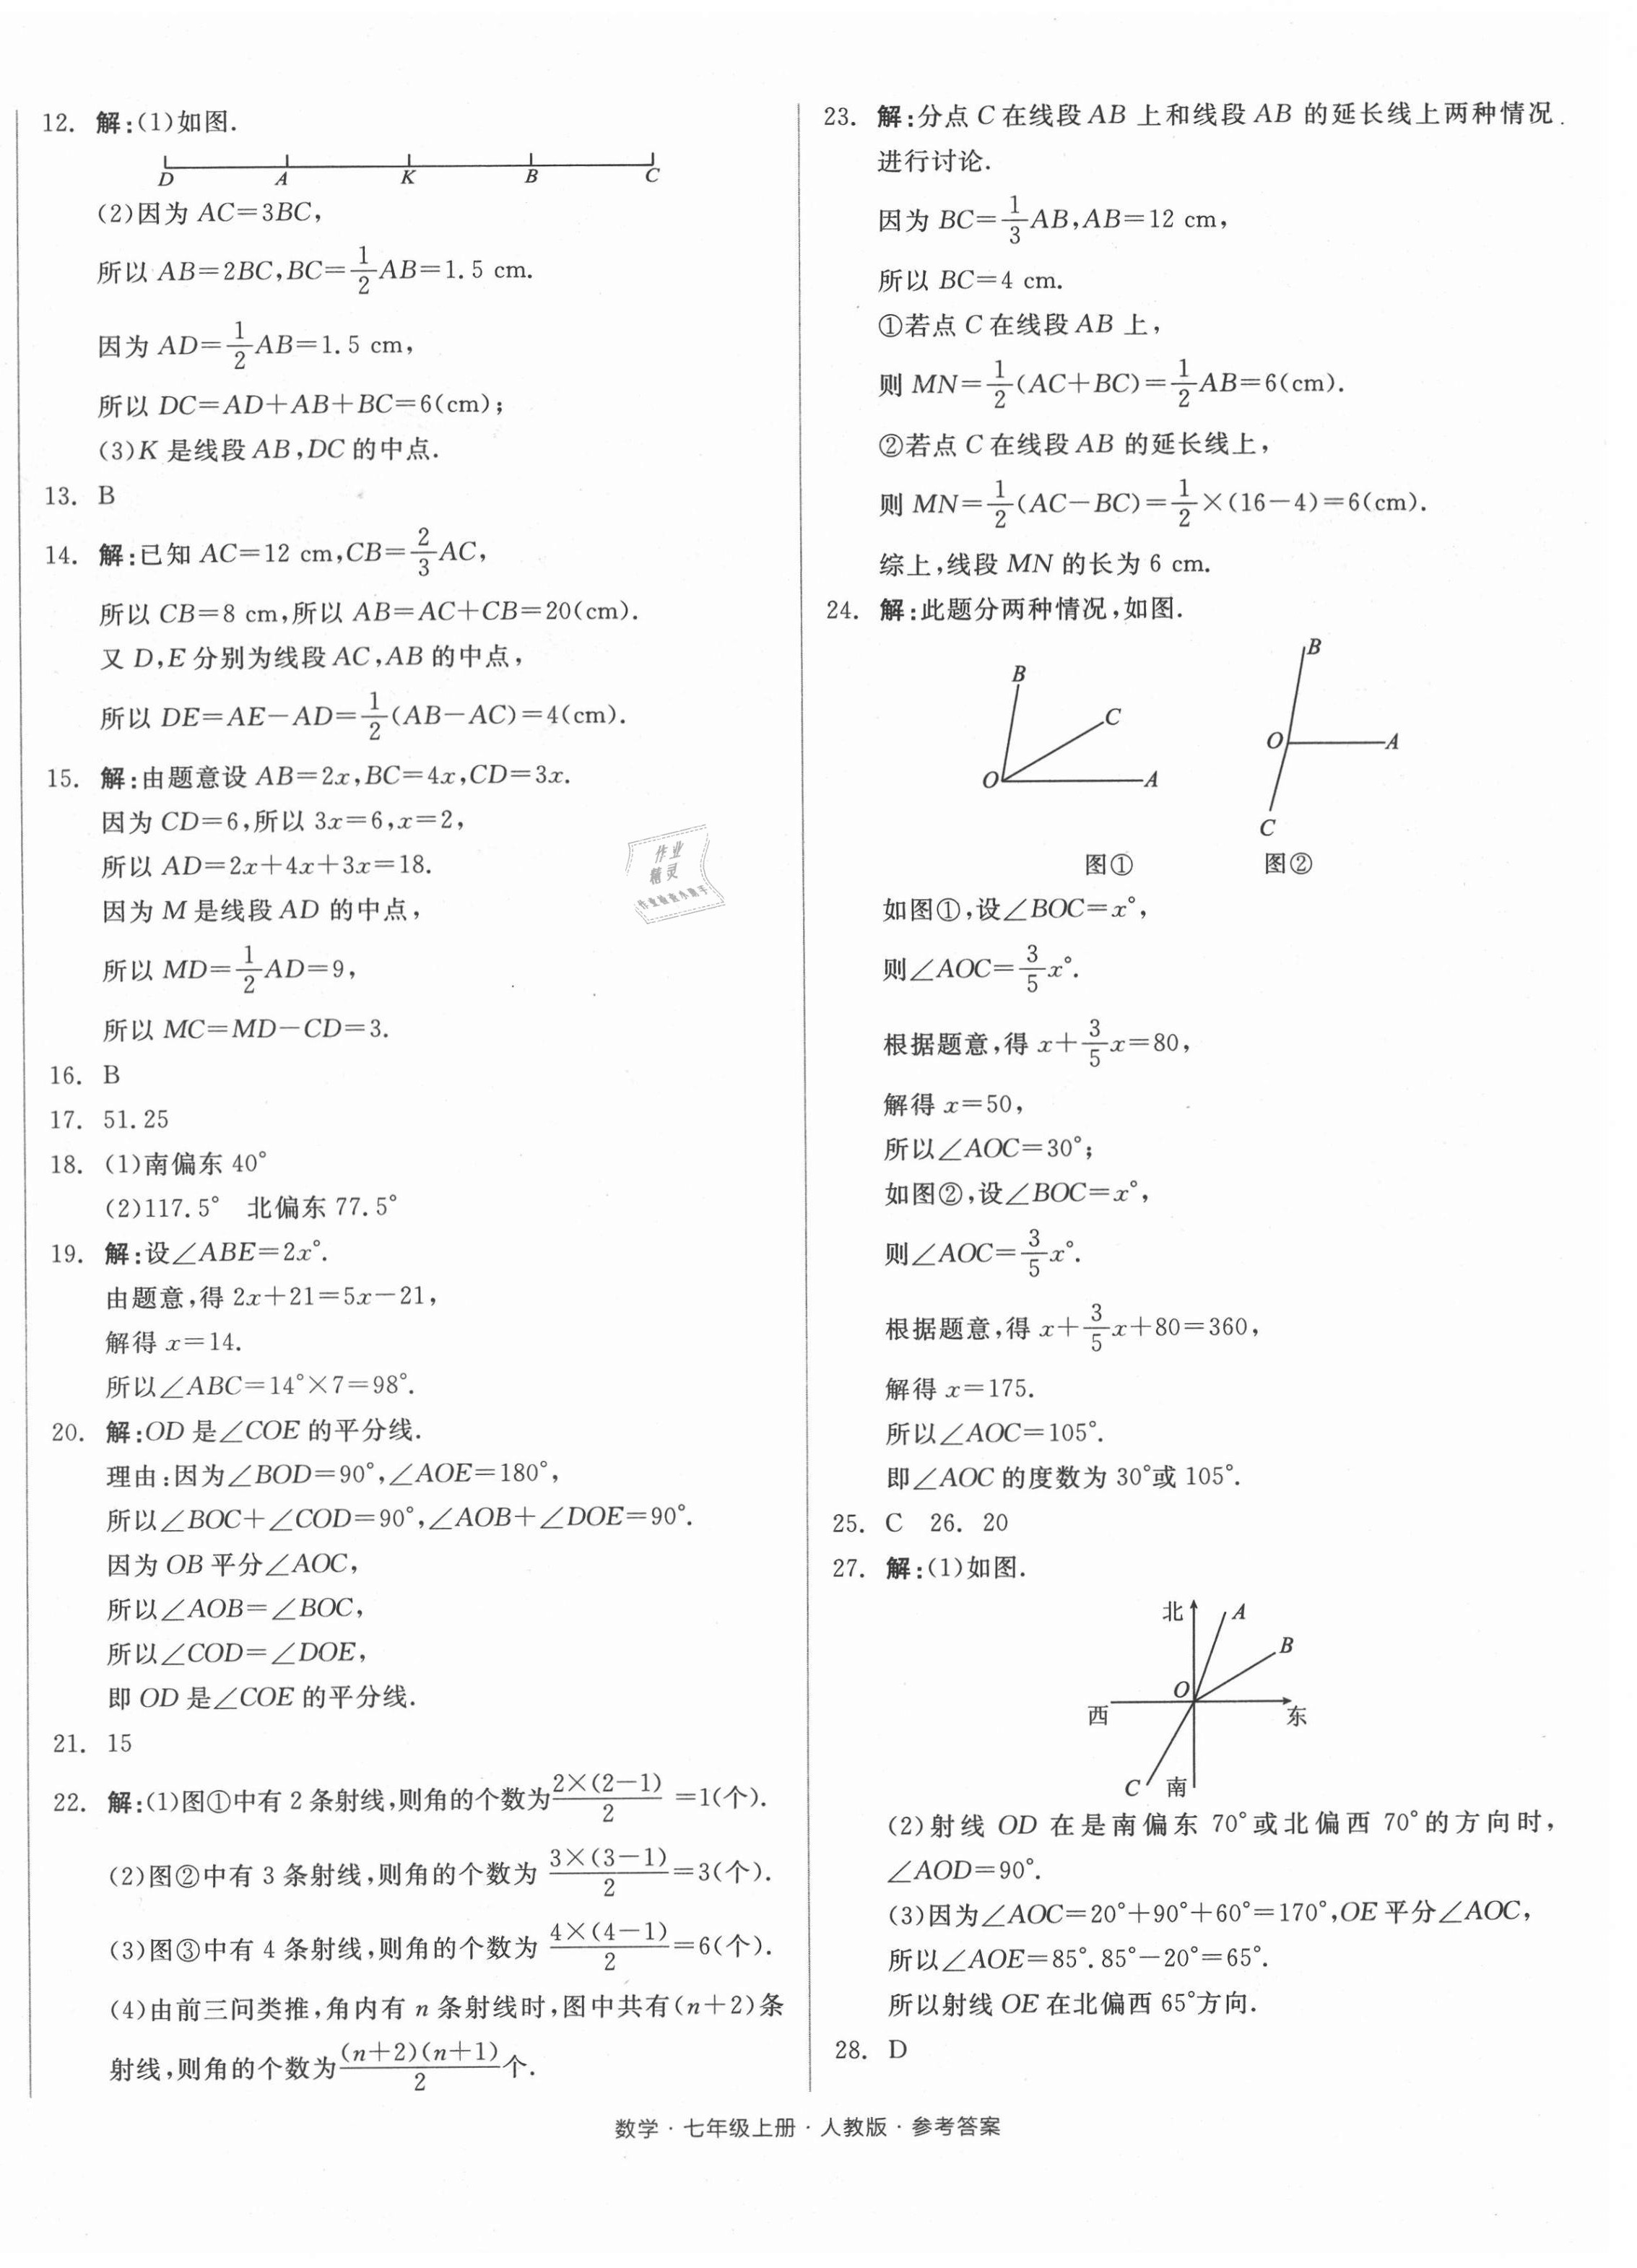 12. 解:(1)如图.
D A K B C
(2)因为 AC=3BC,
所以 AB=2BC,BC=1/2AB=1.5 cm.
因为 AD=1/2AB=1.5 cm,
所以 DC=AD+AB+BC=6(cm);
(3)K 是线段 AB,DC 的中点.
13. B
14. 解:已知 AC=12 cm,CB=2/3AC,
所以 CB=8 cm,所以 AB=AC+CB=20(cm).
又 D,E 分别为线段 AC,AB 的中点,
所以 DE=AE-AD=1/2(AB-AC)=4(cm).
15. 解:由题意设 AB=2x,BC=4x,CD=3x.
因为 CD=6,所以 3x=6,x=2,
所以 AD=2x+4x+3x=18.
因为 M 是线段 AD 的中点,
所以 MD=1/2AD=9,
所以 MC=MD-CD=3.
16. B
17. 51.25
18. (1)南偏东 40°
(2)117.5° 北偏东 77.5°
19. 解:设∠ABE=2x°.
由题意,得 2x+21=5x-21,
解得 x=14.
所以∠ABC=14°×7=98°.
20. 解:OD 是∠COE 的平分线.
理由:因为∠BOD=90°,∠AOE=180°,
所以∠BOC+∠COD=90°,∠AOB+∠DOE=90°.
因为 OB 平分∠AOC,
所以∠AOB=∠BOC,
所以∠COD=∠DOE,
即 OD 是∠COE 的平分线.
21. 15
22. 解:(1)图①中有 2 条射线,则角的个数为2×(2-1)/2=1(个).
(2)图②中有 3 条射线,则角的个数为 3×(3-1)/2=3(个).
(3)图③中有 4 条射线,则角的个数为 4×(4-1)/2=6(个).
(4)由前三问类推,角内有 n 条射线时,图中共有(n+2)条
射线,则角的个数为(n+2)(n+1)/2个.
作业
精灵
23. 解:分点 C 在线段 AB 上和线段 AB 的延长线上两种情况
进行讨论.
因为 BC=1/3AB,AB=12 cm,
所以 BC=4 cm.
①若点 C 在线段 AB 上,
则 MN=1/2(AC+BC)=1/2AB=6(cm).
②若点 C 在线段 AB 的延长线上,
则 MN=1/2(AC-BC)=1/2×(16-4)=6(cm).
综上,线段 MN 的长为 6 cm.
24. 解:此题分两种情况,如图.
B C O A
B O A C
图① 图②
如图①,设∠BOC=x°,
则∠AOC=3/5x°.
根据题意,得 x+3/5x=80,
解得 x=50,
所以∠AOC=30°;
如图②,设∠BOC=x°,
则∠AOC=3/5x°.
根据题意,得 x+3/5x+80=360,
解得 x=175.
所以∠AOC=105°.
即∠AOC 的度数为 30°或 105°.
25. C 26. 20
27. 解:(1)如图.
北 A
B
O
西 东
C 南
(2)射线 OD 在是南偏东 70°或北偏西 70°的方向时,
∠AOD=90°.
(3)因为∠AOC=20°+90°+60°=170°,OE 平分∠AOC,
所以∠AOE=85°.85°-20°=65°.
所以射线 OE 在北偏西 65°方向.
28. D
数学·七年级上册·人教版·参考答案